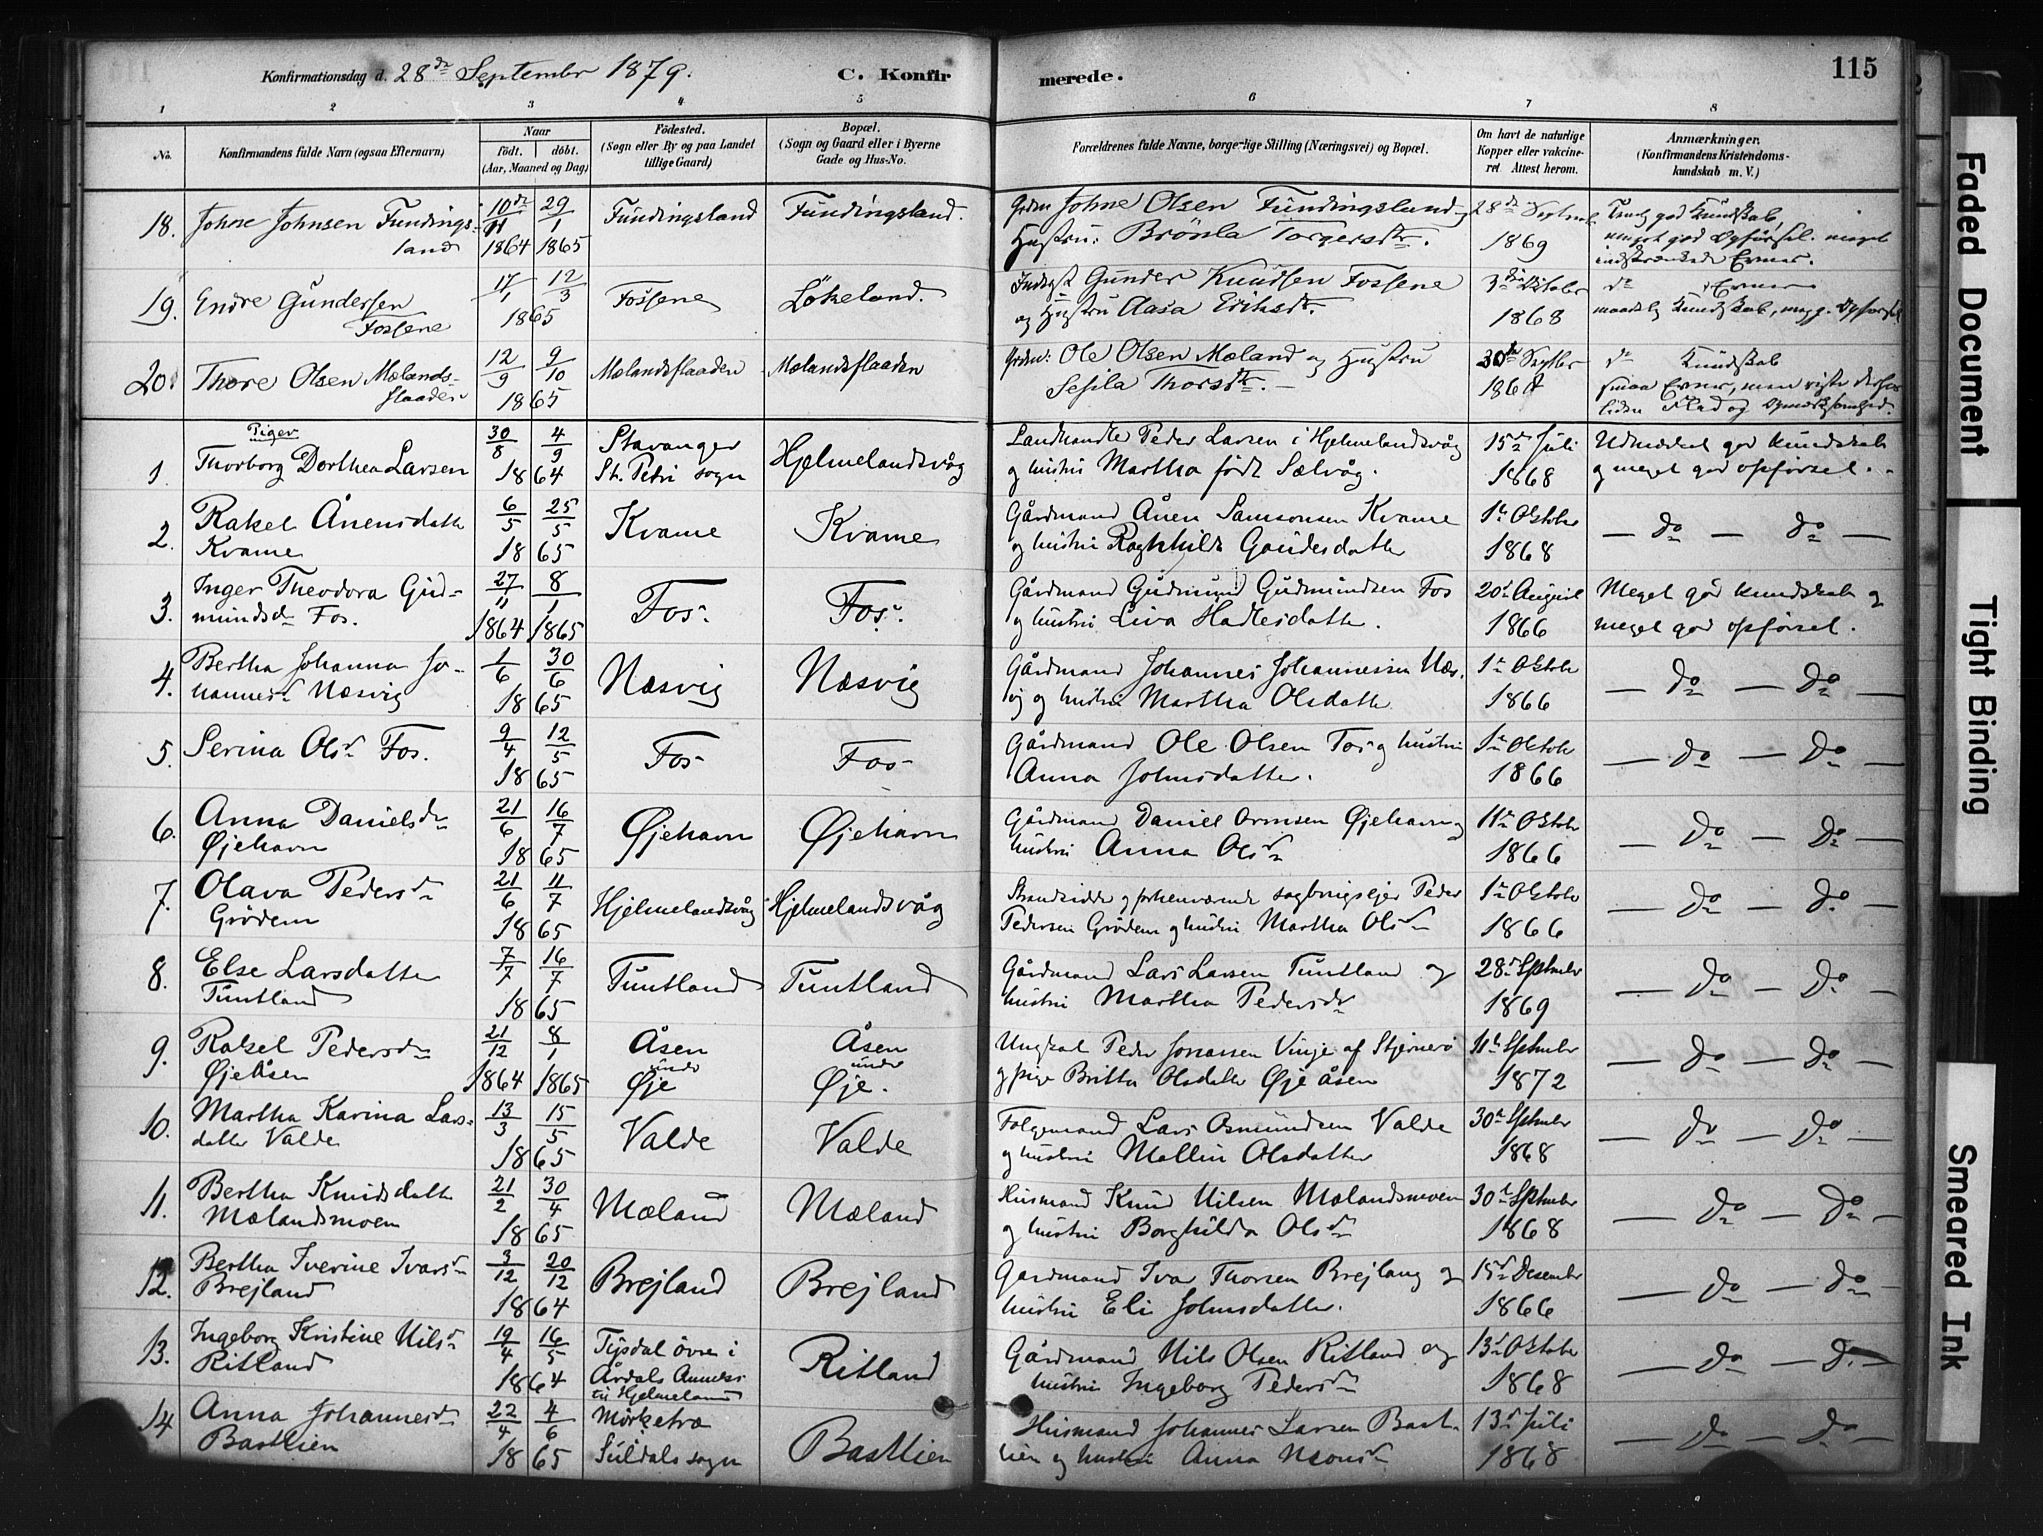 Konfirmationsdag d. 28de September 1879.
C. Konfir
merede.
115
1 2 3 4 5 6 7 8
No.
Konfirmandens fulde Navn (ogsaa Efternavn)
Naar
født. døbt.
(Aar, Maaned og Dag)
Fødested.
(Sogn eller By og paa Landet
tillige Gaard)
Bopæl.
(Sogn og Gaard eller i Byerne
Gade og Hus-No.
Forældrenes fulde Navne, borgerlige Stilling (Næringsvei) og Bopæl.
Om havt de naturlige
Kopper eller vakcine-
ret Attest herom.
Anmærkninger.
(Konfirmandens Kristendoms-
kundskab m. V.)
18. Johne Johnsen Fundings-
land
10de/11 29/1
1864 1865
Fundingsland
Fundingsland.
Johne Olsen Fundingsland
Hustru: Brönla Torgersdtr.
28de Septemb
1869
god Kundskab,
meget god Opførsel. meget
indskrænkede Evner.
19. Endre Gundersen
Fossene
17/1 12/3
1865
Fossene
Løkeland.
Gunder Knudsen Fossene
og Hustru Aasa Eriksdtr.
3die Oktober
1868
do Evner
maadelig Kundskab, meg. g. Opførsel
20. Thore Olsen Mælands-
flaaden
12/9 9/10
1865
Mælandsflaaden
Mælandsflaaden
Ole Olsen Mæland og Hustru
Sesila Thorsdtr.
30te Septbr
do Kundskab
smaa Evner, men viste derfor
liden Flid og Opmærksomhed.
Piger
1. Thorborg Dorthea Larsen
30/8 4/9
1864
Stavanger
St. Petri sogn
Hjelmelandsvåg
Landhandler Peder Larsen i Hjelmelandsvåg
og hustru Martha født Sælvåg.
15de Juli
1868
Udmærket god kundskab
og meget god opførsel.
2. Rakel Ånensdatter
Kvame
6/5 25/5
1865
Kvame
Kvame
Gårdmand Ånen Samsonsen Kvame
og hustru Ragnhilda Gaudesdatter
1te Oktober
1868
— do — do —
3. Inger Theodora Gud-
mundsdr Fos.
27/11 8/1
1864 1865
Fos.
Fos.
Gårdmand Gudmund Gudmundsen Fos
og hustru Liva Hadlesdatter.
20de August
1866
Meget god kundskab og
meget god opførsel.
4. Bertha Johanna Jo-
hannesdr Næsvig
1/6 30/6
1865
Næsvig
Næsvig
Gårdmand Johannes Johannessen Næs-
vig og hustru Martha Olsdatter
1te Oktober
1866
— do — do —
5. Serina Olsdr Fos.
9/4 12/5
1865
Fos
Fos
Gårdmand Ole Olsen Fos og hustru
Anna Johnsdatter.
1te Oktober
1866
— do — do —
6. Anna Danielsdr
Øjehavn
21/6 16/7
1865
Øjehavn
Øjehavn
Gårdmand Daniel Ormsen Øjehavn og
hustru Anna Olsdr
11te Oktober
1866
— do — do —
7. Olava Pedersdr
Grødem
21/6 11/7
1865
Hjelmelandsvåg
Hjelmelandsvåg
Strandsidder og forhenværende sagbrugsejer Peder
Pedersen Grødem og hustru Martha Olsdr
1te Oktober
1866
— do — do —
8. Else Larsdatter
Tuntland
7/7 16/7
1865
Tuntland
Tuntland
Gårdmand Lars Larsen Tuntland og
hustru Martha Pedersdr
28de September
1869
— do — do —
9. Rakel Pedersdr
Øjeåsen
21/12 8/1
1864 1865
Åsen
under
Øje
Åsen
under
Øje.
Ungkal Peder Jonassen Vinje af Stjernerø
og pige Britta Olsdatter Øjeåsen
11te September
1872
— do — do —
10. Martha Karina Lars-
datter Valde
13/3 15/5
1865
Valde
Valde
Følgemand Lars Osmundsen Valde
og hustru Mallin Olsdatter
30te September
1868
— do — do —
11. Bertha Knudsdatter
Mælandsmoen
21/2 30/4
1865
Mæland
Mæland
Husmand Knud Nilsen Mælandsmoen
og hustru Borghilda Olsdr
30te September
1868
— do — do —
12. Bertha Iverine Ivarsdr
Brejland
3/12 20/12
1864
Brejland
Brejland
Gårdmand Ivar Thorsen Brejland og
hustru Eli Johnsdatter.
15de Desember
1866
— do — do —
13. Ingeborg Kristine Nilsdr
Ritland
19/4 16/5
1864
Tysdal øvre i
Årdals Annex
til Hjelmeland
Ritland
Gårdmand Nils Olsen Ritland og
hustru Ingeborg Pedersdr
13de Oktober
1868
— do — do
14. Anna Johannesdr
Bastlien
22/4 4/6
1865
Mørketræ
i
Suldals sogn
Bastlien
Husmand Johannes Larsen Bast-
lien og hustru Anna
13de Juli
1868
— do — do —
Faded Document
Tight Binding
Smeared Ink